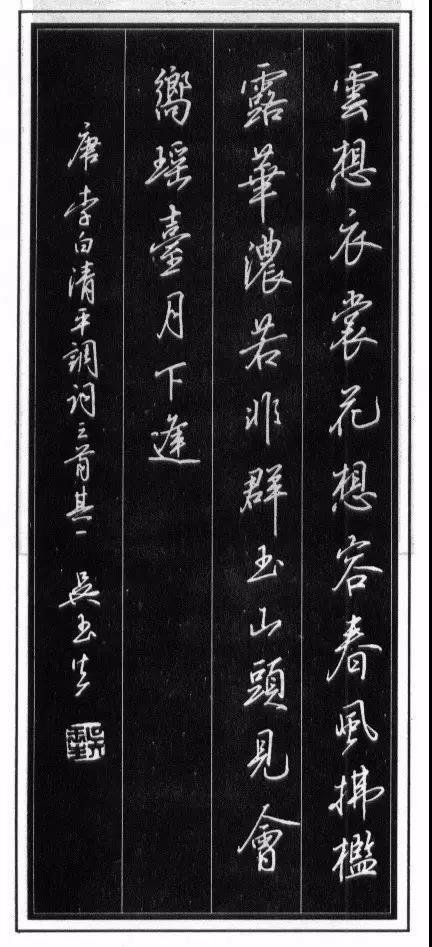 雲想衣裳花想容春風拂檻
露華濃若非群玉山頭見會
嚮瑤臺月下逢
唐李白清平調詞三首其一 吳玉生